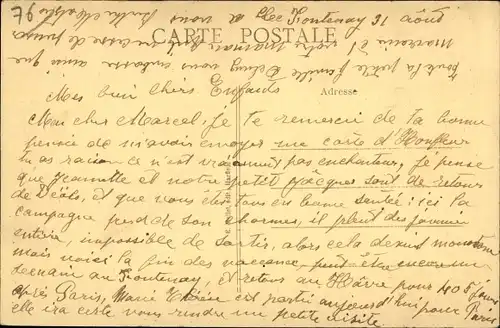 Le Fontenay 31 août
CARTE POSTALE
Adresse
Mes bien chers Enfants
Mon cher Marcel. Je te remercie de ta bonne
pensée de m'avoir envoyer une carte d'Honfleur
tu as raison ce n'est vraiment pas enchanteur, je pense
que Jeannette et notre petit Jacques sont de retour
de Déols, et que vous êtes tous en bonne santé; ici la
campagne perd de son charmes, il pleut des journée
entière, impossible de sortir, alors cela devient monotone
mais voici la fin des vacances, peut être encore une
semaine au Fontenay, et retour au Hâvre pour 4 ou 5 jours
après Paris, Marie Thérèse est partie aujourd'hui pour Paris
elle ira certe vous rendre une petite visite.
toute la petite famille vous embrasse ainsi que
votre maman
à vous
976